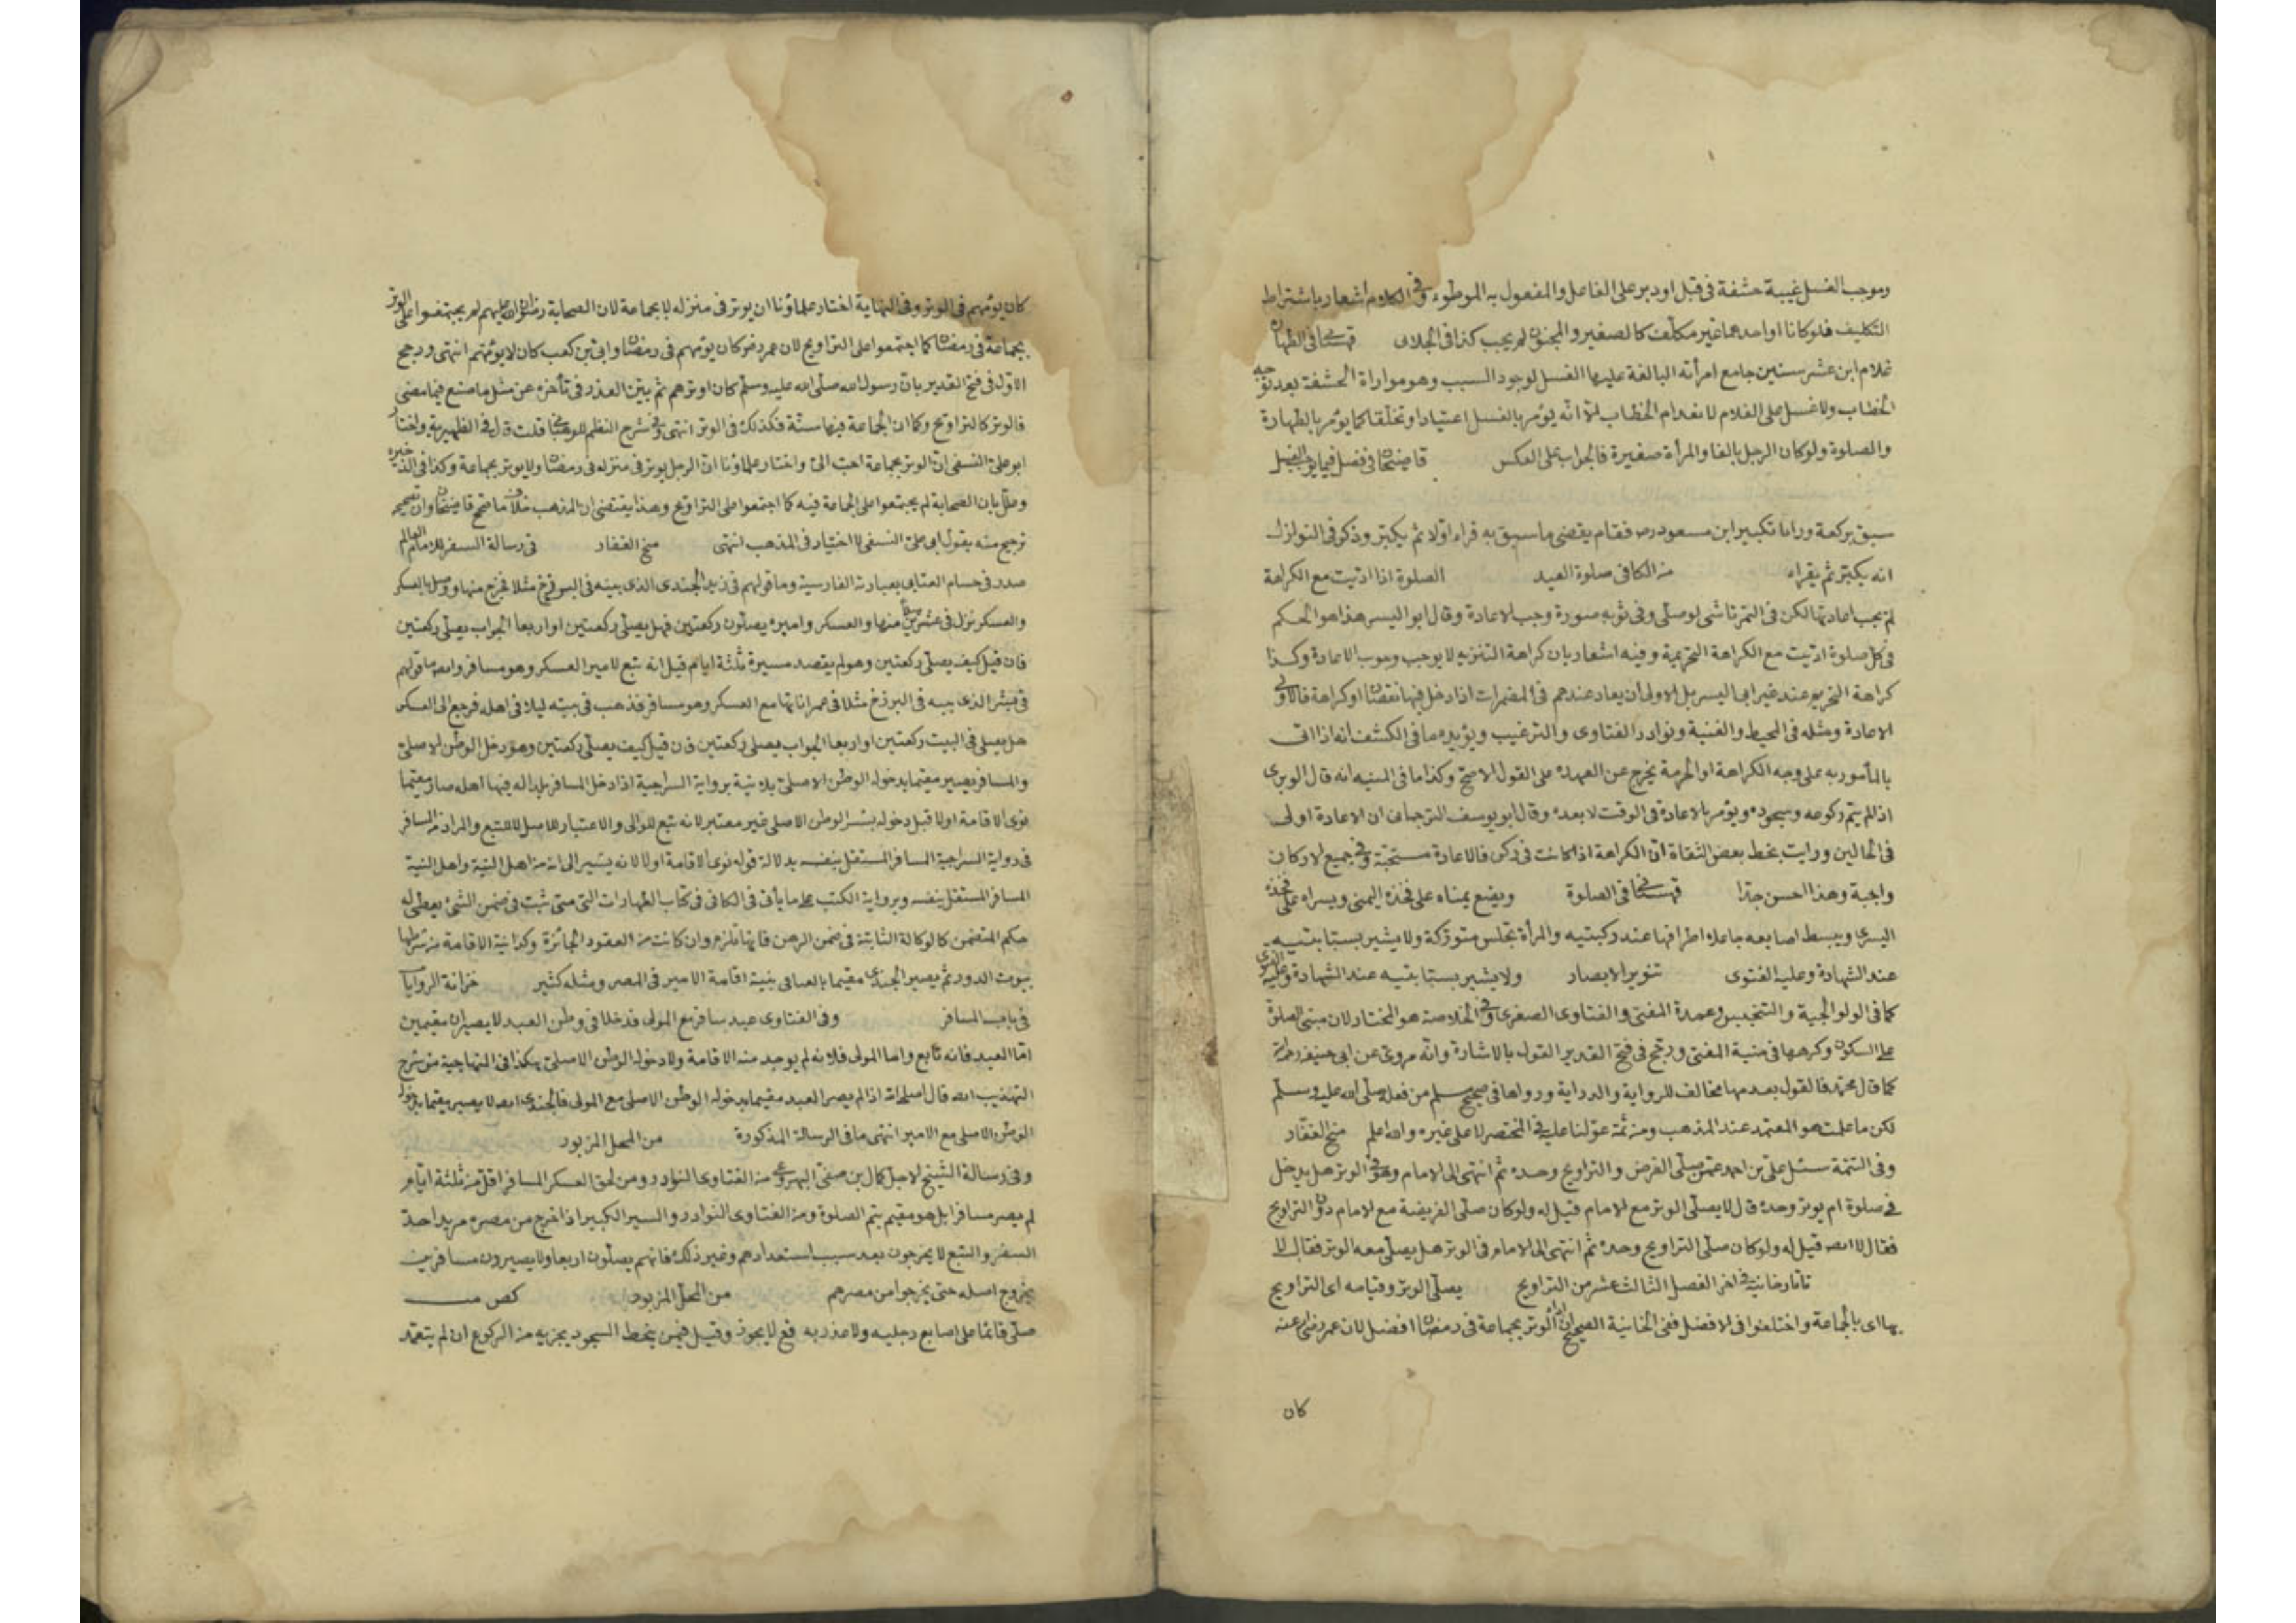 وموجب الغسل غيبة حشفة فى قبل او دبر على الفاعل والمفعول به الموطوء وفى الكلام اشعار باشتراط
التكليف فلو كانا او احدهما غير مكلف كالصغير والمجنون لم يجب كذا فى الجلابى قهستانى فى الطهارة
غلام ابن عشر سنين جامع امرأته البالغة عليها الغسل لوجود السبب وهو مواراة الحشفة بعد توجه
الخطاب ولا غسل على الغلام لانعدام الخطاب الا انه يؤمر بالغسل اعتيادا وتخلقا كما يؤمر بالطهارة
والصلوة ولو كان الرجل بالغا والمرأة صغيرة فالجواب على العكس قاضيخان فى فصل فيما يوجب الغسل
سبق بركعة ورأى تكبير ابن مسعود رضى فقام يقضى ما سبق به قراء اولا ثم يكبر وذكر فى النوازل
انه يكبر ثم يقراء من الكافى صلوة العيد الصلوة اذا اديت مع الكراهة
لم يجب اعادتها لكن فى التمرتاشى لو صلى وفى ثوبه صورة وجب الاعادة وقال ابو اليسر هذا هو الحكم
فى كل صلوة اديت مع الكراهة التحريمية وفيه اشعار بان كراهة التنزيه لا يوجب وجوب الاعادة وكذا
كراهة التحريم عند غير ابى اليسر بل الاولى ان يعاد عندهم فى المضمرات اذا دخل فيها نقصان او كراهة فالاولى
الاعادة ومثله فى المحيط والقنية ونوادر الفتاوى والترغيب ويؤيده ما فى الكشف انه اذا اتى
بالمأمور به على وجه الكراهة او الحرمة يخرج عن العهدة على القول الاصح وكذا ما فى المنيه انه قال الوبرى
اذا لم يتم ركوعه وسجوده ويؤمر بالاعادة فى الوقت لا بعده وقال ابو يوسف الترجمانى ان الاعادة اولى
فى الحالين ورايت بخط بعض الثقاة ان الكراهة اذا كانت فى ركن فالاعادة مستحبة وفى جميع الاركان
واجبة وهذا احسن جدا قهستانى فى الصلوة ويضع يمناه على فخذه اليمنى ويسراه على فخذه
اليسرى ويبسط اصابعه جاعلا اطرافها عند ركبتيه والمرأة تجلس متوركة ولا يشير بسبابتيه
عند الشهادة وعليه الفتوى تنوير الابصار ولا يشير بسبابتيه عند الشهادة وعليه الفتوى
كما فى الولوالجية والتجنيس وعمدة المفتى والفتاوى الصغرى وفى الخلاصة هو المختار لان مبنى الصلوة
على السكون وكرهها فى منية المفتى ورجح فى فتح القدير القول بالاشارة وانه مروى عن ابى حنيفة رحمه الله
كما قال محمد فالقول بعدمها مخالف للرواية والدراية ورواها فى صحيح مسلم من فعله صلى الله عليه وسلم
لكن ما علمت هو المعتمد عند المذهب ومن ثمة عولنا عليه فى المختصر لا على غيره والله اعلم منح الغفار
وفى التتمة سئل على بن احمد عمن صلى الفرض والتراويح وحده ثم انتهى الى الامام وهو فى الوتر هل يدخل
فى صلوة ام يوتر وحده قال لا يصلى الوتر مع الامام قيل له ولو كان صلى الفريضة مع الامام دون التراويح
فقال لا ايضه قيل له ولو كان صلى التراويح وحده ثم انتهى الى الامام فى الوتر هل يصلى معه الوتر فقال لا
تاتارخانيه فى اخر الفصل الثالث عشر من التراويح يصلى الوتر وقيامه اى التراويح
بها اى بالجماعة واختلفوا فى الافضل ففى الخانية الصحيح ان اداء الوتر بجماعة فى رمضان افضل لان عمر رضى عنه
كان
كان يؤمهم فى الوتر وفى النهاية اختار علماؤنا ان يوتر فى منزله لا بجماعة لان الصحابة رضوان الله عليهم لم يجتمعوا على الوتر
بجماعة فى رمضان كما اجتمعوا على التراويح لان عمر رضى كان يؤمهم فى رمضان وابى بن كعب كان لا يؤمهم انتهى ورجح
الاول فى فتح القدير بان رسول الله صلى الله عليه وسلم كان اوتر هم ثم بين العذر فى تأخره عن مثل ما صنع فيما مضى
فالوتر كالتراويح وكما ان الجماعة فيها سنة فكذلك فى الوتر انتهى وفى شرح النظم الوهبانى قلت قال فى الظهيرية واختار
ابو على النسفى ان الوتر بجماعة احب الى واختار علماؤنا ان الرجل يوتر فى منزله فى رمضان ولا يوتر بجماعة وكذا فى الذخيره
وعلل بان الصحابة لم يجتمعوا على الجماعة فيه كما اجتمعوا على التراويح وهذا يقتضى ان المذهب خلاف ما صحح قاضيخان وان تصحيحه
ترجيح منه بقول ابى على النسفى لا اختيار فى المذهب انتهى منح الغفار فى رسالة السفر للامام العالم
صدر فى حسام العتابى بعبارته الفارسية وما قولهم فى زيد الجندى الذى بيته فى مثلا فخرج منها ووصل بالعسكر
والعسكر نزل فى عشر منها والعسكر واميره يصلون ركعتين فهل يصلى ركعتين او اربعا الجواب يصلى ركعتين
فان قيل كيف يصلى ركعتين وهو لم يقصد مسيرة ثلثة ايام قيل انه تبع لامير العسكر وهو مسافر وايضا ما قولهم
فى الذى بيته فى البرزخ مثلا مع العسكر وهو مسافر فذهب فى بيته ليلا فى اهله فرجع الى العسكر
هل يصلى فى البيت ركعتين او اربعا الجواب يصلى ركعتين فان قيل كيف يصلى ركعتين وهو دخل الوطن الاصلى
والمسافر يصير مقيما بدخوله الوطن الاصلى بلا نية برواية السراجية اذا دخل المسافر بلدا له فيها اهله صار مقيما
نوى الاقامة اولا قبل دخوله الوطن الاصلى غير معتبر لانه تبع للوالى والاعتبار للاصل لا للتبع والمراد من المسافر
فى رواية السراجية المسافر المستقل بنفسه بدلالة قوله نوى الاقامة اولا لانه يشير الى انه من اهل النية واهل النية
المسافر المستقل بنفسه وبرواية الكتب على ما يأتى فى الكافى فى كتاب الطهارات التى متى ثبت فى ضمن الشئ يعطى له
حكم المتضمن كالوكالة الثابتة فى ضمن الرهن فانها تلزم وان كانت من العقود الجائزة وكذا نية الاقامة من شرطها
بيوت المدر ثم يصير الجندى مقيما بنية اقامة الامير فى المصر ومثله كثير خزانة الروايات
فى باب المسافر وفى الفتاوى عبد سافر مع المولى فدخلا فى وطن العبد لا يصيران مقيمين
اما العبد فانه تابع واما المولى فلانه لم يوجد منه الاقامة ولا دخوله الوطن الاصلى هكذا فى من شرح
التهذيب ايضه قال اذا لم يصر العبد مقيما بدخوله الوطن الاصلى مع المولى فالجندى ايضه لا يصير مقيما بدخوله
الوطن الاصلى مع الامير انتهى ما فى الرسالة المذكورة من المحل المزبور
وفى رسالة الشيخ الاجل كمال بن من الفتاوى النوادر ومن لحق العسكر المسافر اقل من ثلثة ايام
لم يصر مسافرا بل هو مقيم يتم الصلوة ومن الفتاوى النوادر والسير الكبير اذا خرج من مصره مريدا حد
السفر والتبع لا يخرجون بعد سبب استعدادهم وغير ذلك فانهم يصلون اربعا ولا يصيرون مسافرين
بخروج اصله حتى يخرجوا من مصرهم من المحل المزبور
صلى قائما على اصابع رجليه ولا عذر به قع لا يجوز وقيل فيمن ينحط السجود يجزيه من الركوع ان لم يتعمد